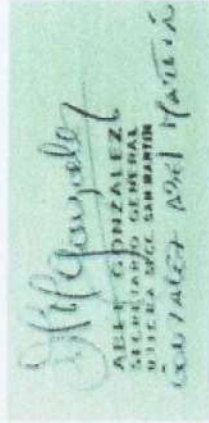 ABEL GONZALEZ
SECRETARIO GENERAL
U.T.C.E.R.A. SECC. SAN MARTIN
GONZALEZ ABEL MARTIN